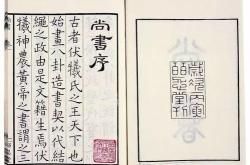 尚書序
古者伏犧氏之王天下也
始畫八卦造書契以代結
繩之政由是文籍生焉伏
犧神農黃帝之書謂之三